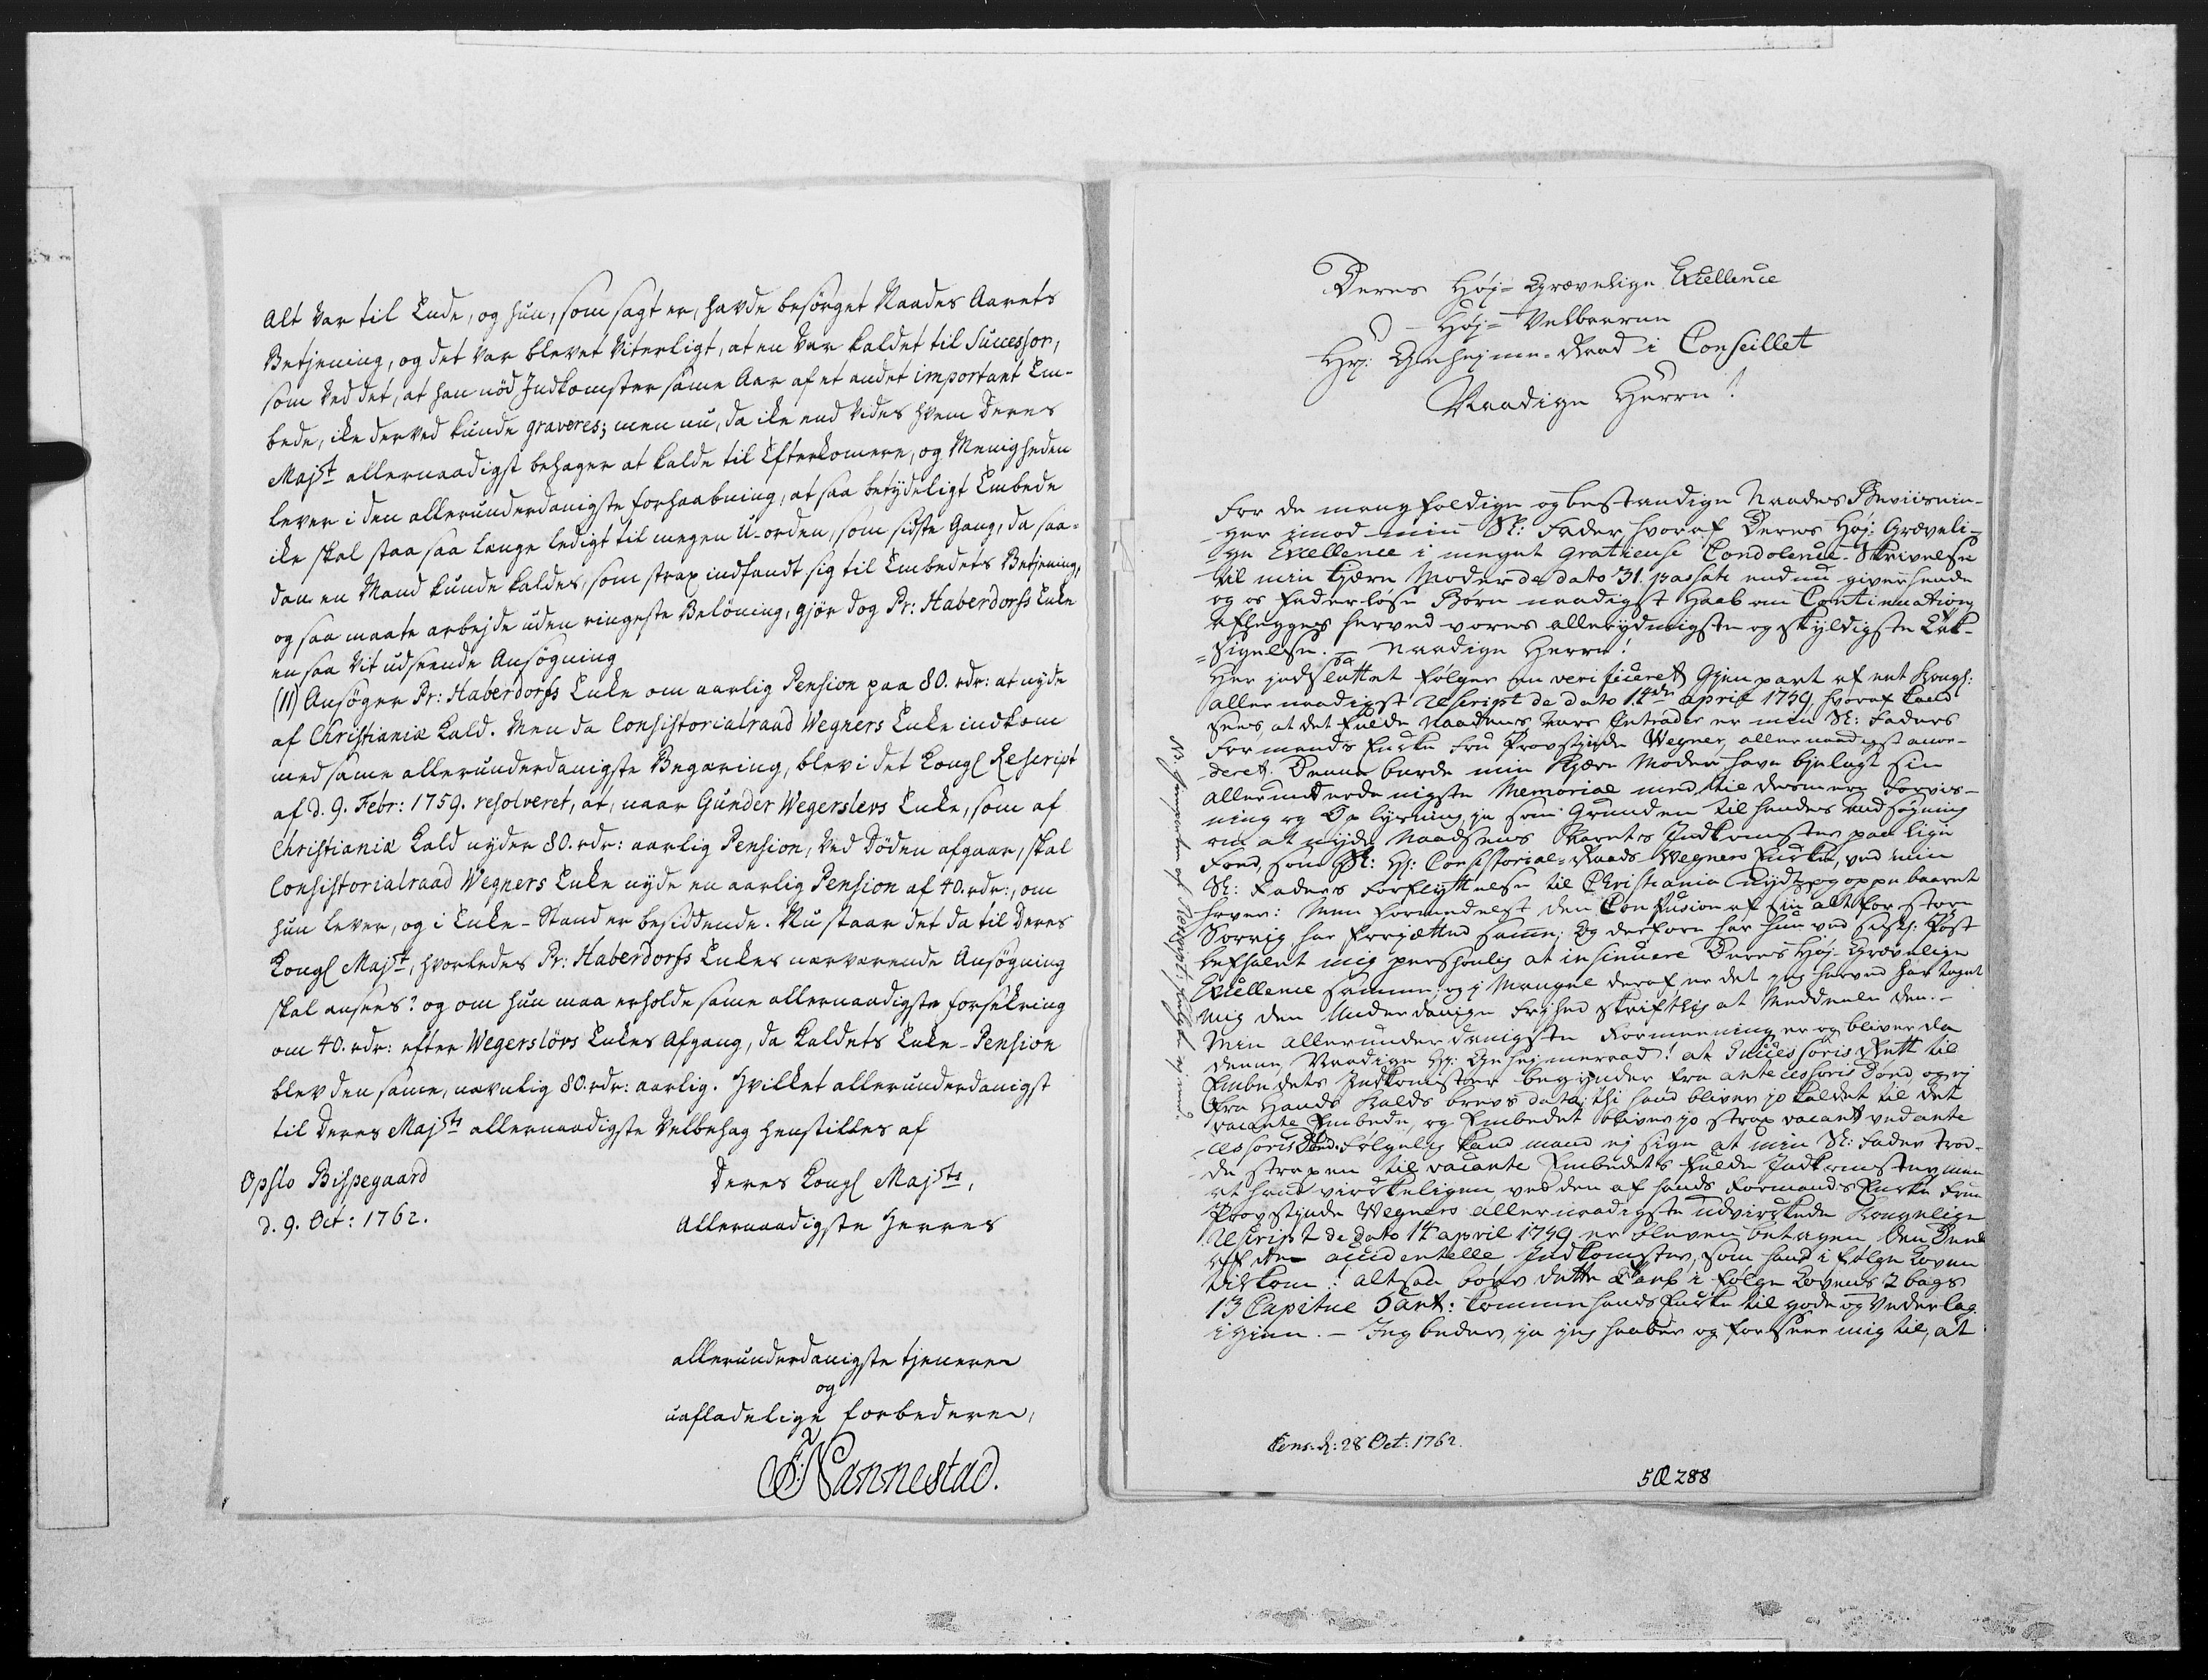 Alt var til Ende, og hun, som sagt er, havde besørget Naades Aarets
Betjening, og det var blevet viterligt, at en var kaldet til Successor,
som ved det, at han nød Indkomster same Aar af et andet important Em-
bede, ike derved kunde graveres; men nu, da ike end vides hvem Deres
Majst allernaadigst behager at kalde til Efterkomere, og Menigheden
lever i den allerunderdanigste forhaabning, at saa betydeligt Embede
ike skal staa saa længe ledigt til megen U-orden, som sidste Gang, da saa-
dan en Mand kunde kaldes, som strax indfandt sig til Embedets Betjening,
og saa maate arbejde uden ringeste Belöning, gjør dog Pr: Haberdorfs Enke
en saa vit udseende Ansøgning
(11) Ansøger Pr: Haberdorfs Enke om aarlig Pension paa 80. rdr: at nyde
af Christianiæ Kald. Men da Consistorialraad Wegners Enke indkom
med same allerunderdanigste Begæring, blev i det Kongl Rescript
af d. 9. Febr: 1759. resolveret, at, naar Gunder Wegerslevs Enke, som af
Christianiæ Kald nyder 80. rdr: aarlig Pension, ved Döden afgaar, skal
Consistorialraad Wegners Enke nyde en aarlig Pension af 40. rdr:, om
hun lever, og i Enke-Stand er besiddende. Nu staar det da til Deres
Kongl Majst, hvorledes Pr: Haberdorfs Enkes nærværende Ansøgning
skal ansees? og om hun maa erholde same allernaadigste forsikring
om 40. rdr: efter Wegerslövs Enkes Afgang, da Kaldets Enke-Pension
blev den same, nævnlig 80. rdr: aarlig. Hvilket allerunderdanigst
til Deres Majsts allernaadigste Velbehag henstilles af
Opslo Bispegaard
d. 9. Oct: 1762.
Deres Kongl Majsts,
Allernaadigste Herres
allerunderdanigste tjenere
og
uafladelige forbedere,
F: Nannestad.
Deres Høj-Grævelige Excellence
Høj-Velbaarne
Hr: Geheime-Raad i Conseillet
Naadige Herre!
For de mangfoldige og bestandige Naades Beviisnin-
ger imod min Sl: Fader, hvoraf Deres Høj-Græveli-
ge Excellence i meget gratieuse Condolence-Skrivelse
til min kjære Moder de dato 31. passato endnu giver hende
og os faderløse Børn naadigst Haab om Continuation,
aflegges herved vores allerydmigste og skyldigste Tak-
sigelse. Naadige Herre!
Her indsluttet følger en verificeret Gjenpart af eet Kongl:
allernaadigst Rescript de dato 14de april 1759, hvoraf kand
sees, at det fulde Naadens Aars Entrader er min Sl: Faders
Formands Enke Fru Provstinde Wegner, allernaadigst accor-
deret. Denne burde min kjære Moder have bielagt sin
allerunderdanigste Memorial med til desmere Forvis-
ning og Oplysning, ja som Grunden til hendes Ansøgning
om at nyde Naadsens Aarets Indkomster paa liige
Fond, som Sl: Hr: Consistorial-Raads Wegners Enke, ved min
Sl: Faders Forflyttelse til Christiania nydt og oppebaaret
haver: Men formedelst den Confusion af sin alt for store
Sorrig har forgjættet samme; Og derfore har hun ved sidst: Post
befahlet mig personlig at insinuere Deres Høj-Grævelige
Excellence samme, og i Mangel deraf er det jeg herved har taget
mig den Underdanige Frihed skriftlig at meddeele den.-
Min allerunderdanigste Formeening er og bliver da
denne, Naadige Hr: Geheimeraad! at Successoris Rett til
Embedets Indkomster begynder fra antecessoris Död, og ej
fra Hands Kalds brevs dato; thi hand bliver jo kaldet til det
vacante Embede, og Embedet bliver jo strax vacant ved ante-
cessoris Död. Følgelig kand mand ej sige at min Sl: Fader trod-
de strax ein til vacante Embedets fulde Indkomster, men
at hand virkeligen ved den af hands Formands Enke Frue
Provstinde Wegners allernaadigste udvirkede Kongelige
Rescript de dato 14 april 1759 er bleven betagen den Deel
af de accidentelle Indkomster, som hand i følge Loven
tilkom: altsaa bör dette Tab i følge Lovens 2 bogs
13 Capitul 5 Art: komme hands Enke til gode og Vederlag
igien. - Jeg beder, ja jeg haaber og forseer mig til, at
Cons: d: 28 Oct: 1762.
5Æ288